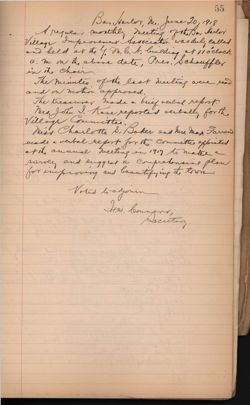 55
Bar Harbor, Me, June 20, 1918
A regular monthly meeting of the Bar Harbor
Village Improvement Association was duly called
and held at the Y.M.C.A. building at 11 o'clock
a.m. on the above date, Pres. Schauffler
in the chair.
The minutes of the last meeting were read
and on motion approved.
The treasurer made a brief verbal report
Mrs. John I. Kane reported verbally for the
Village Committee.
Miss Charlotte Baker and Mrs. Max Farrand
made a verbal report for the committee appointed
at the annual meeting in 1917 to make a
survey and suggest a comprehensive plan
for improving and beautifying the town
Voted to adjourn
Secretary